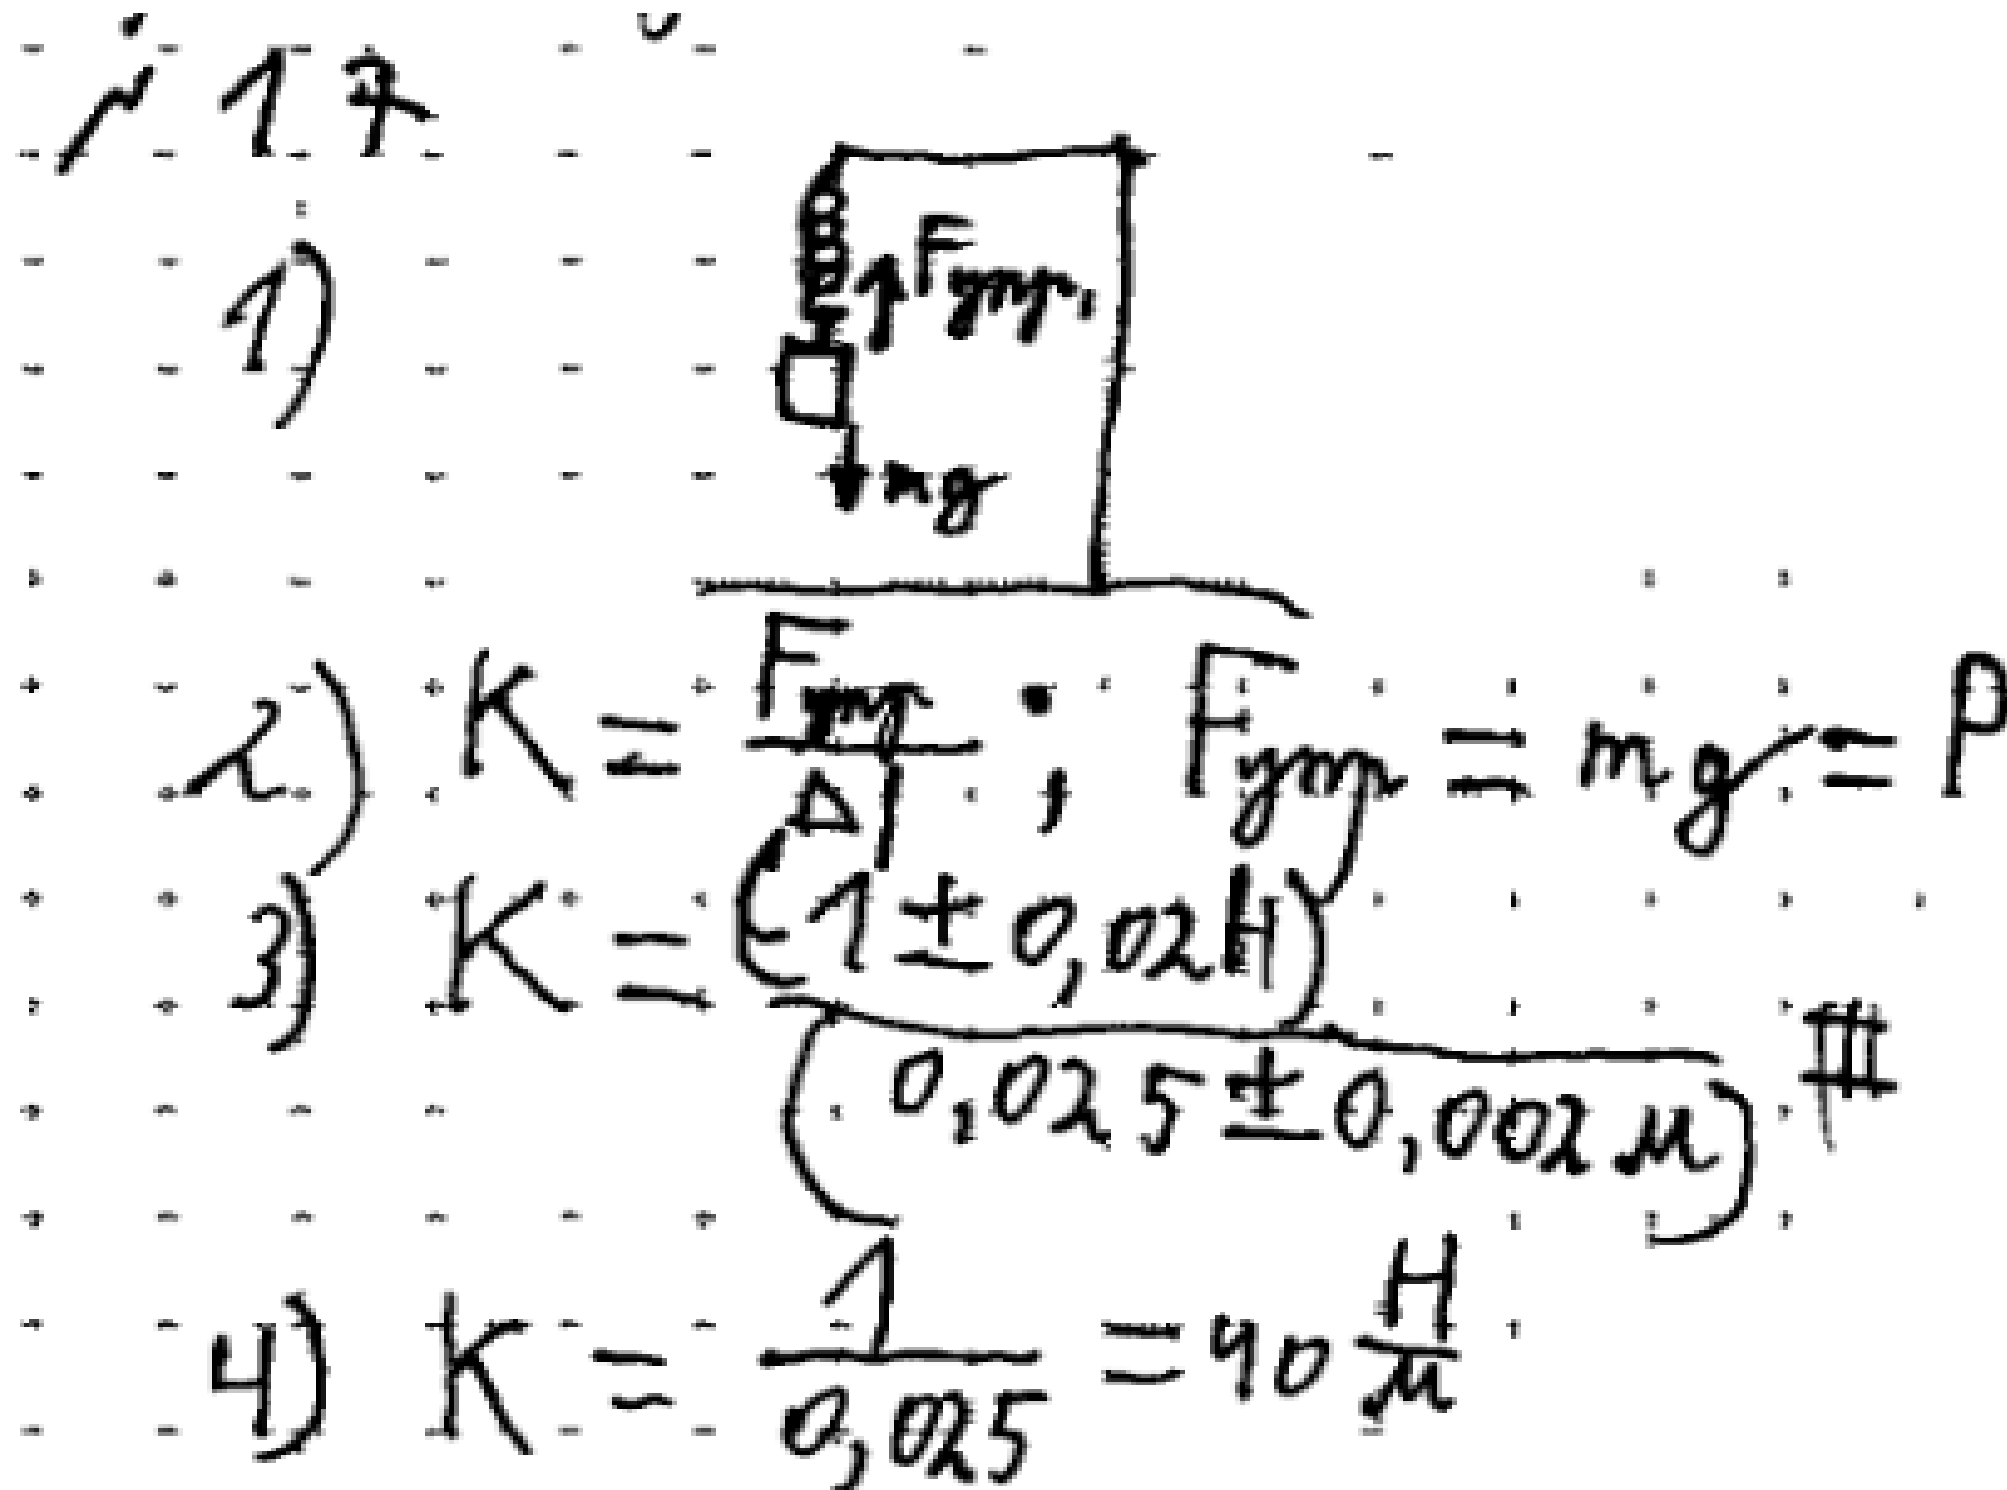 № 17
1)
Fупр.
mg
2) K = Fупр / Δl ; Fупр = mg = P
3) K = (1 ± 0,02 Н) / (0,025 ± 0,002 м)
4) K = 1 / 0,025 = 40 Н/м